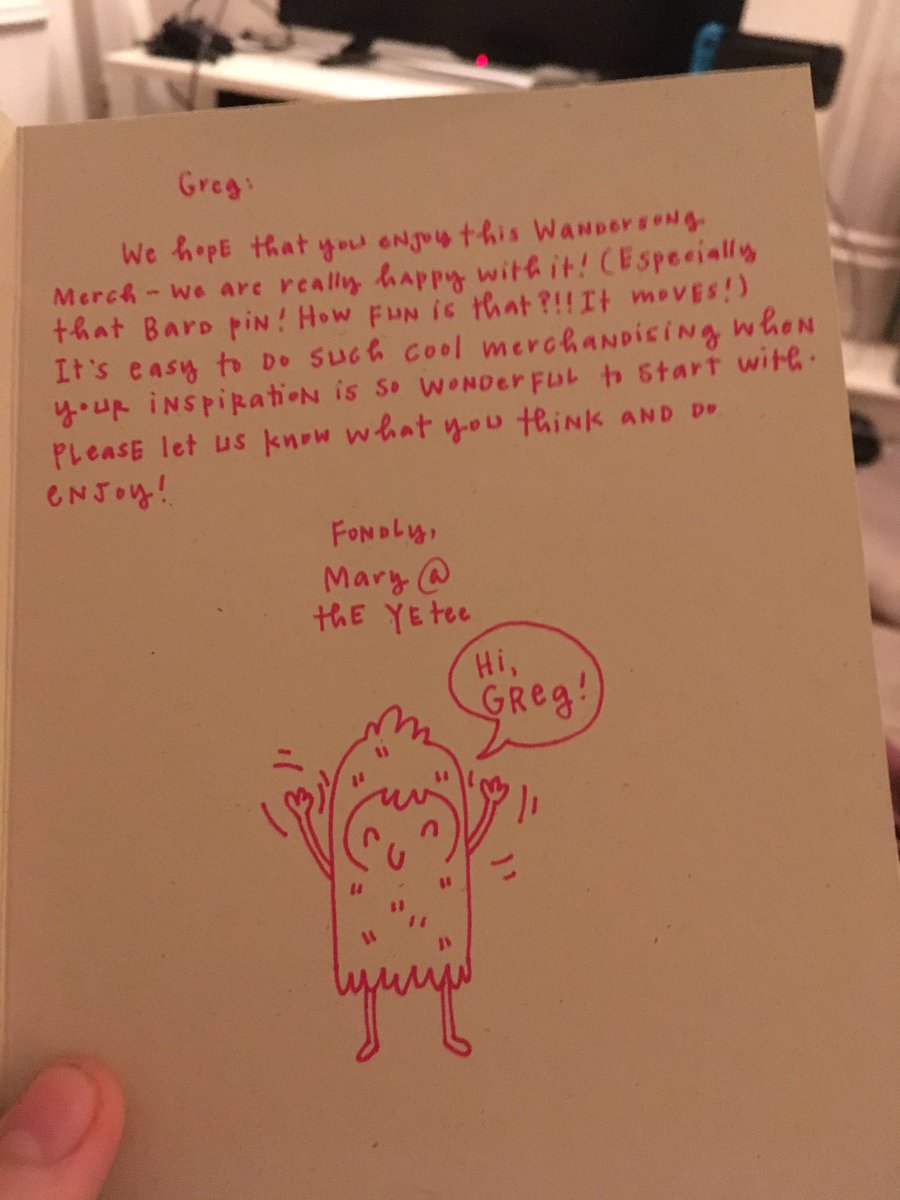 Greg:
We hopE that you enjoy this WANDERSONG
Merch - we are really happy with it! (Especially
that BARD pin! How FUN is that?!! It moves!)
It's easy to DO SUCH cool merchandising when
your inspiration is so wonderful to start with.
Please let us know what you think and do
enjoy!
Fondly,
Mary @
thE YEtee
Hi,
GReg!